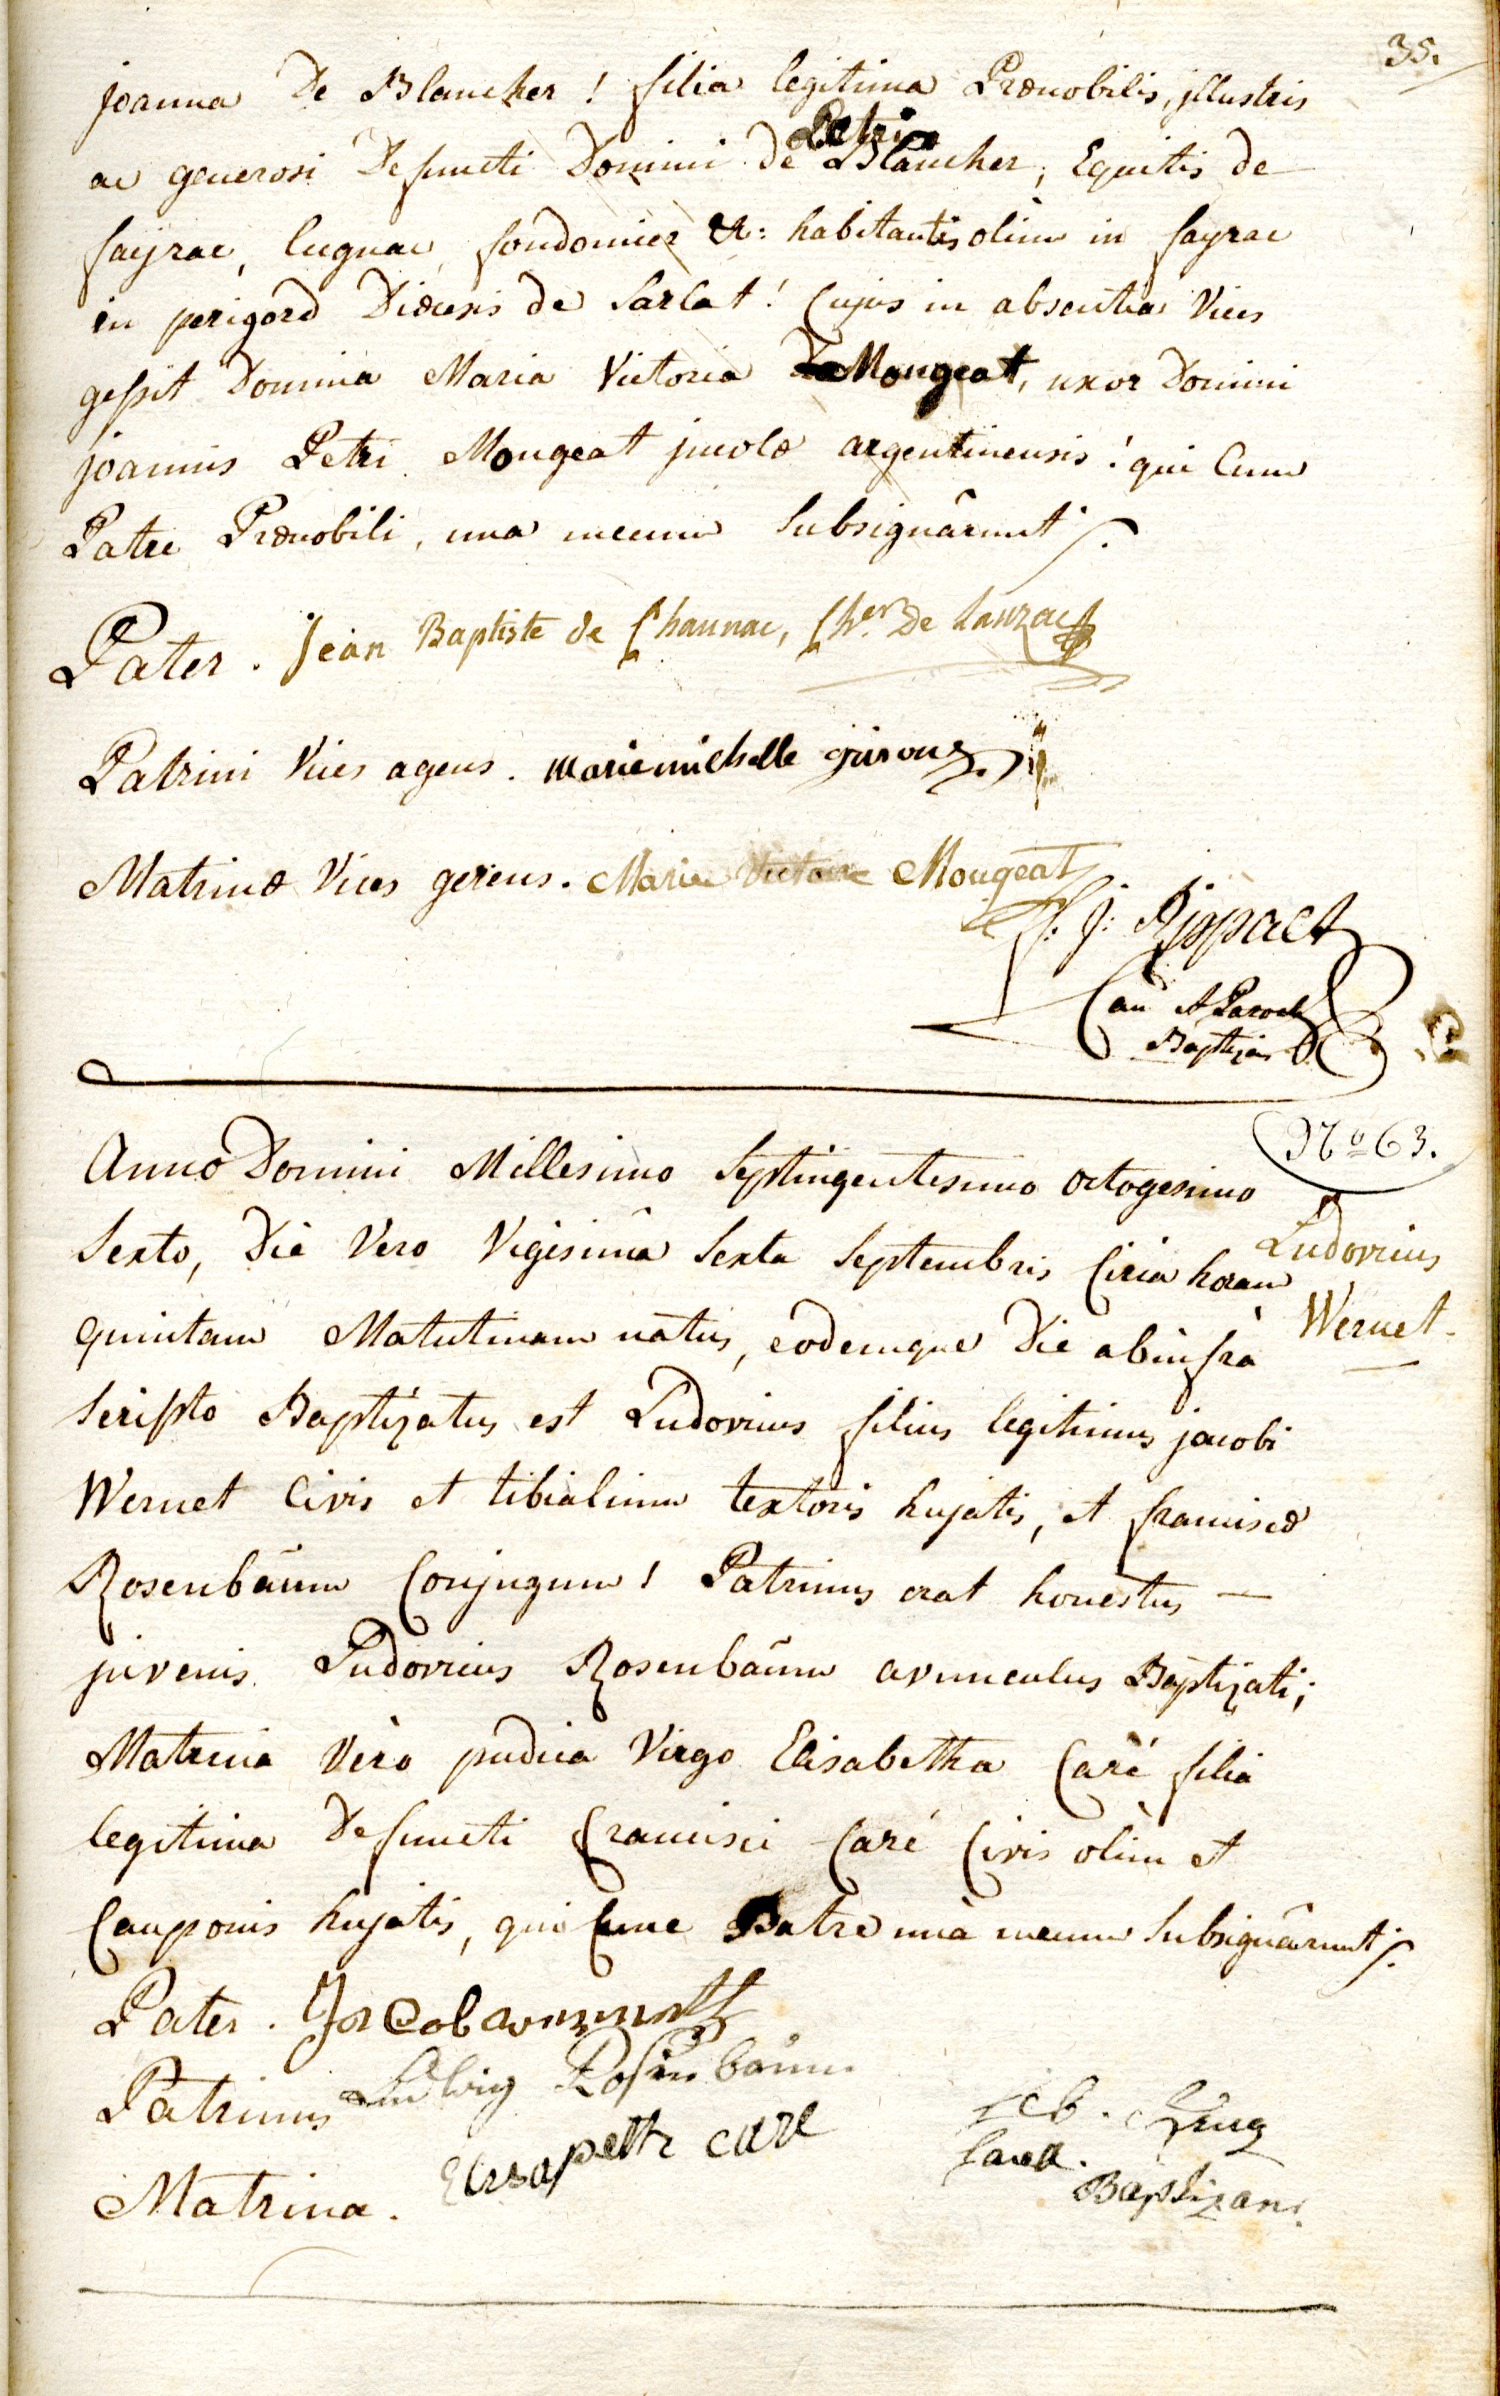 35.
joanna De Blancher ! filia legitima Prænobilis, jllustris
ac generosi Defuncti Domini Petri de Blancher, Equitis de
fayrac, lugnac, fondomier &: habitantis olim in fayrac
in perigord Diœcesis de Sarlat ! Cujus in absentia Vices
gessit Domina Maria Victoria Mougeat, uxor Domini
joannis Petri Mougeat jncolæ argentinensis ! qui Cum
Patre Prænobili, una mecum Subsignârunt
Pater. Jean Baptiste de Chaunac, Cher. De Lanzac
Patrini Vices agens. marie michelle
Matrinæ Vices gerens. Marie Victoire Mougeat
Can et Paroch
Baptizans
Nº 63.
Anno Domini Millesimo Septingentesimo octogesimo
Sexto, Die Vero Vigesimâ Sexta Septembris Circa horam
Ludovicus
quintam Matutinam natus, eodemque Die ab infrà
Wernet.
Scripto Baptizatus est Ludovicus filius legitimus jacobi
Wernet Civis et tibialium textoris hujatis, et franciscæ
Rosenbaum Conjugum ! Patrinus erat honestus —
juvenis Ludovicus Rosenbaum avunculus Baptizati;
Matrina Vero pudica Virgo Elisabetha Caré filia
legitima Defuncti francisci Caré Civis olim et
Cauponis hujatis, qui Cum Patre unà mecum Subsignârunt
Pater. Jacob
Patrinus Ludwig Rosenbaum
Matrina. Elisapetha care
Baptizans.